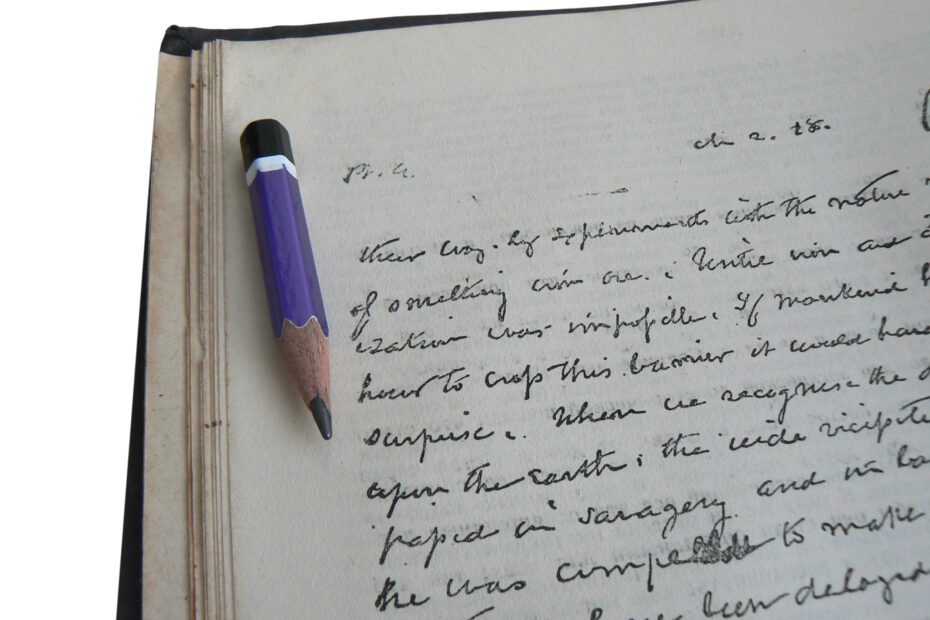 ch 2. 18.
their way. by experiments with the nature
of smelting iron ore. ; Until iron and
ization was impossible. If mankind
how to cross this barrier it would have
surprise. When we recognise the
upon the Earth, the wide vicissitu
passed in savagery and in ba
he was compelled to make
been delayed